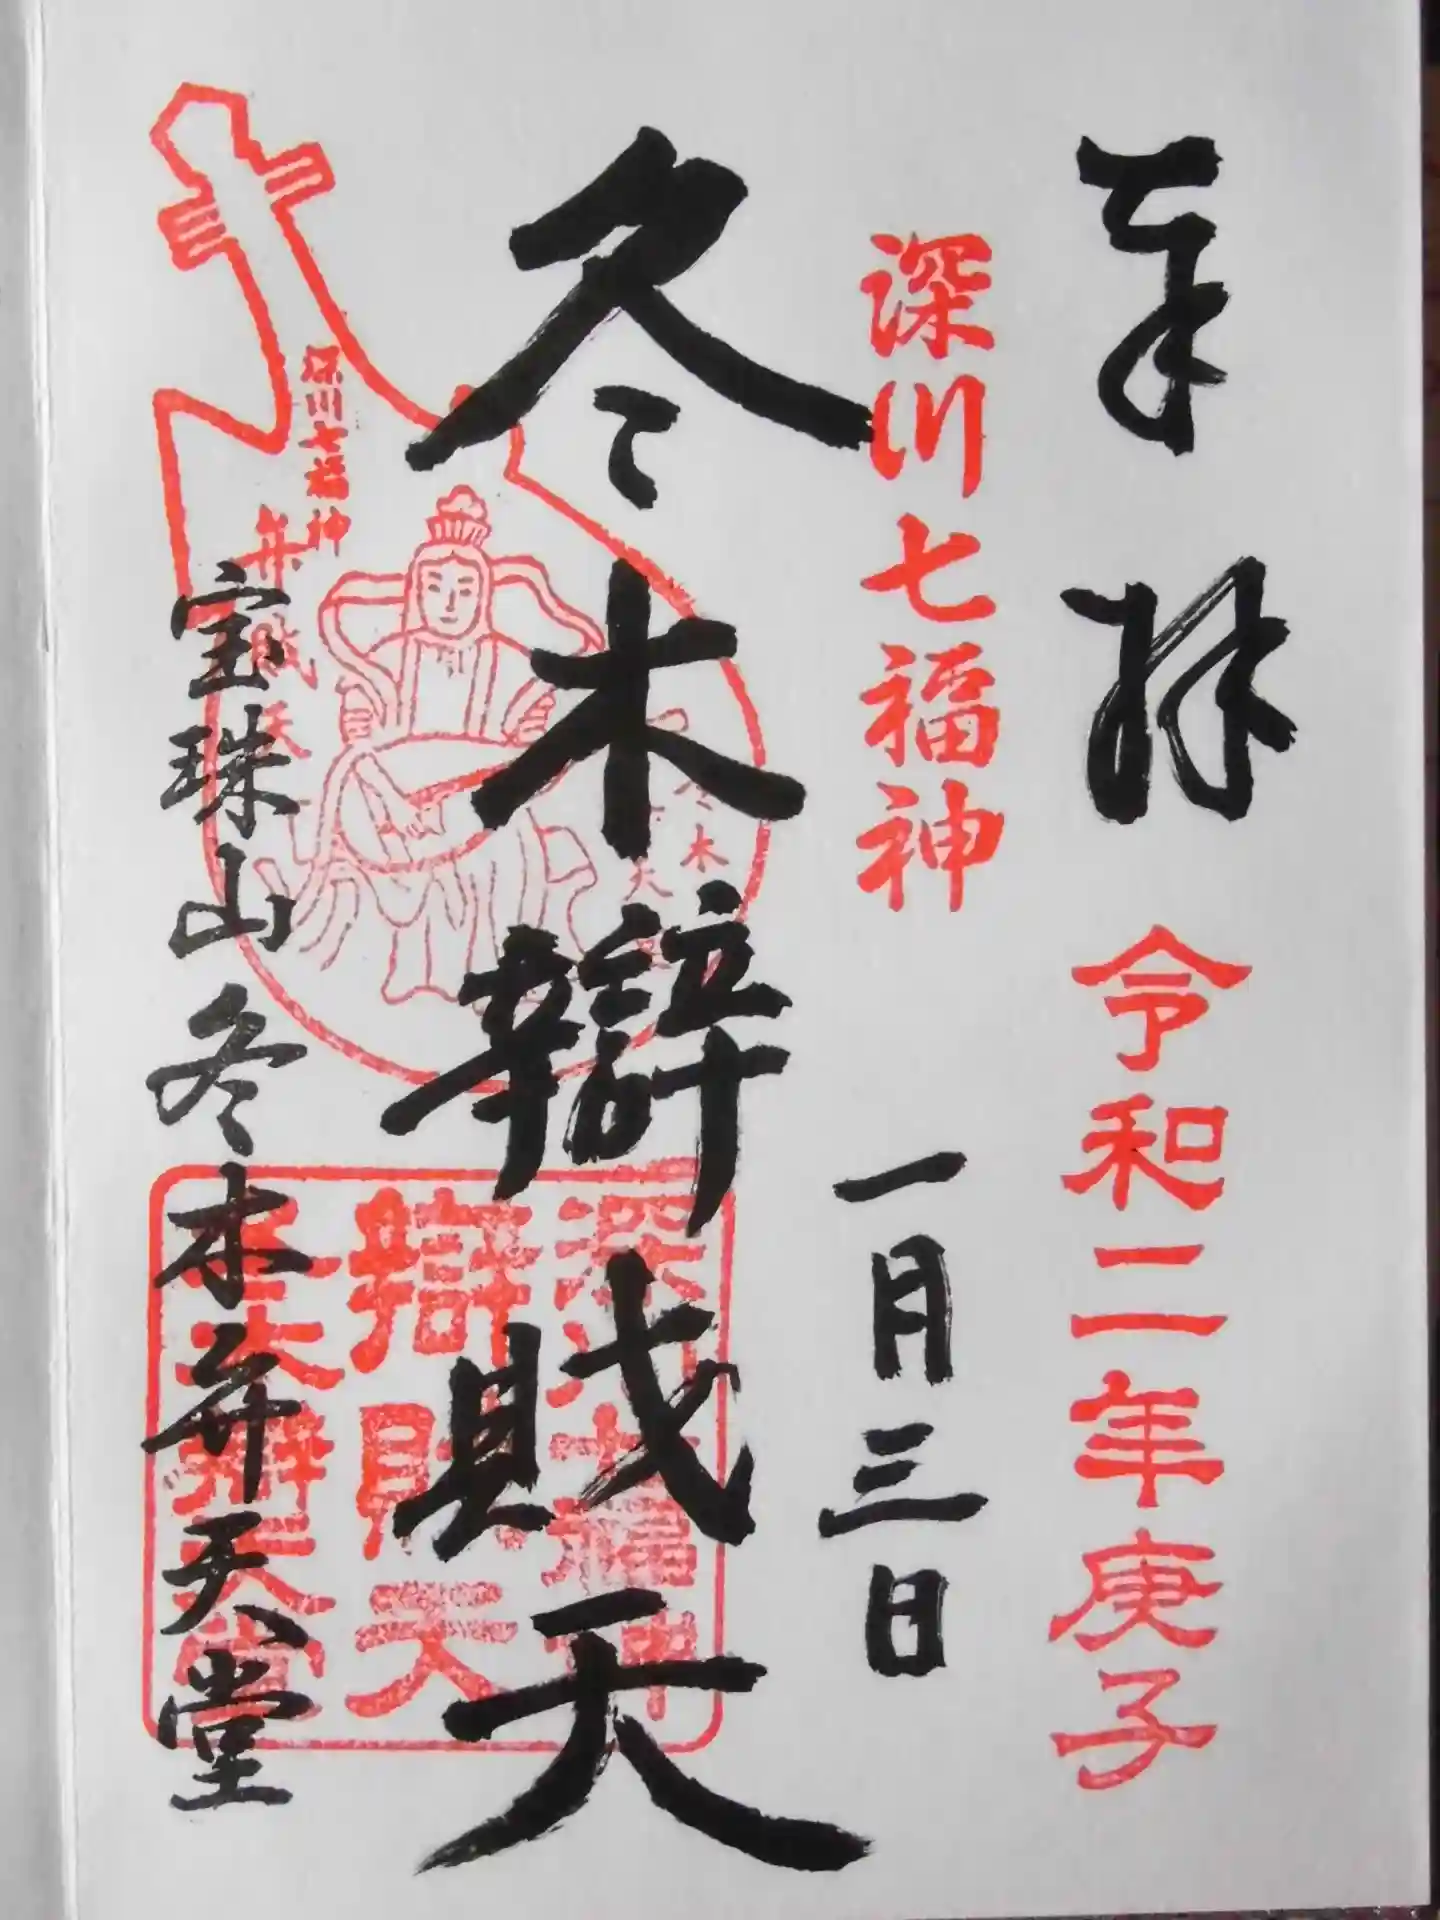 奉拝
令和二年庚子
深川七福神
一月三日
冬木辯財天
深川七福神
弁財天
冬木
深川七福神
辯財天
冬木弁天堂
宝珠山冬木弁天堂